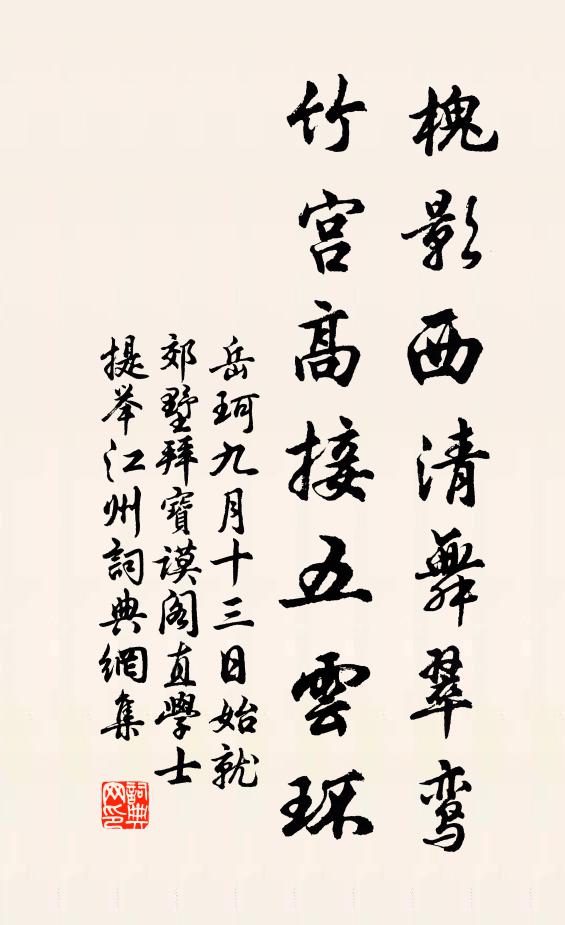 槐影西清舞翠鸾
竹宫高接五雲环
岳珂九月十三日始就
郊墅拜寶謨阁直學士
提举江州詞典網集
詞典网印